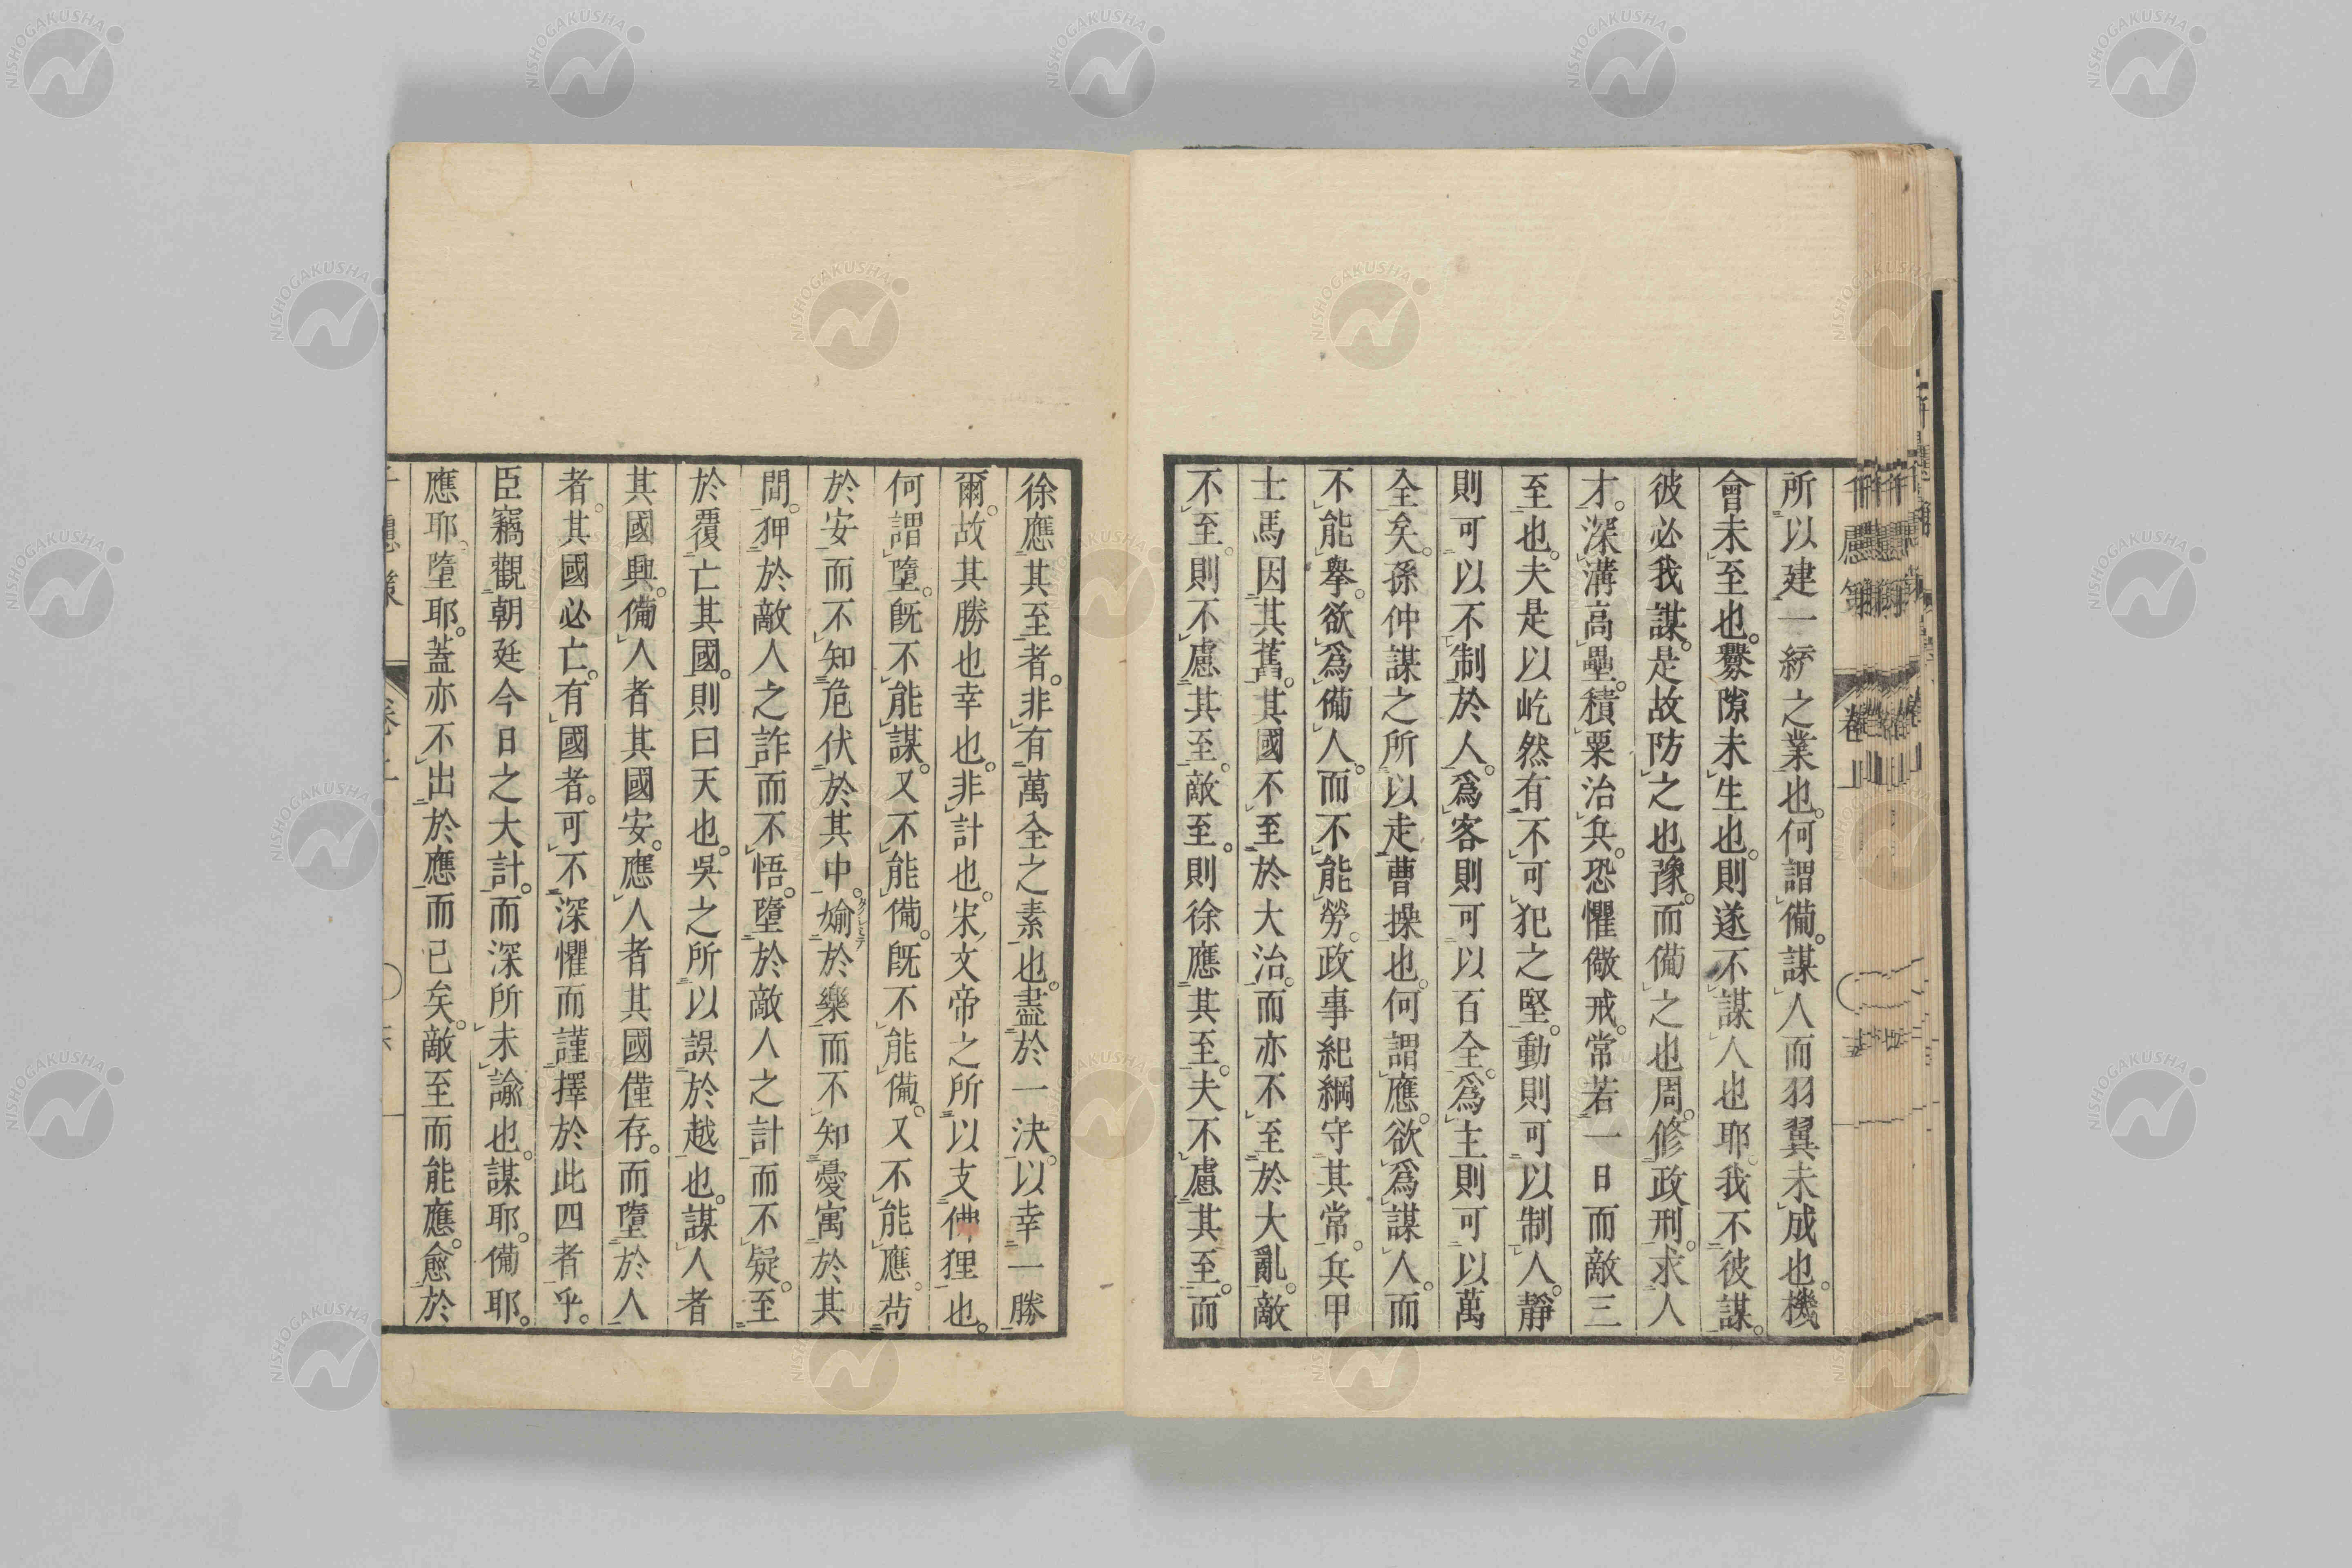 所以建一統之業也。何謂備。謀人而羽翼未成也。機
會未至也。釁隙未生也。則遂不謀人也耶。我不彼謀。
彼必我謀。是故防之也豫。而備之也周。修政刑。求人
才。深溝高壘。積粟治兵。恐懼儆戒。常若一日而敵三
至也。夫是以屹然有不可犯之堅。動則可以制人。靜
則可以不制於人。爲客則可以百全。爲主則可以萬
全矣。孫仲謀之所以走曹操也。何謂應。欲爲謀人。而
不能擧。欲爲備人。而不能勞。政事紀綱守其常。兵甲
士馬因其舊。其國不至於大治。而亦不至於大亂。敵
不至。則不慮其至。敵至。則徐應其至。夫不慮其至。而
徐應其至者。非有萬全之素也。盡於一決。以幸一勝
爾。故其勝也幸也。非計也。宋文帝之所以支佛狸也。
何謂墮。既不能謀。又不能備。既不能備。又不能應。苟
於安而不知危伏於其中。媮於樂而不知憂寓於其
間。狎於敵人之詐而不悟。墮於敵人之計而不疑。至
於覆亡其國。則曰天也。吳之所以誤於越也。謀人者
其國興。備人者其國安。應人者其國僅存。而墮於人
者。其國必亡。有國者。可不深懼而謹擇於此四者乎。
臣竊觀朝廷今日之大計。而深所未諭也。謀耶。備耶。
應耶。墮耶。蓋亦不出於應而已矣。敵至而能應。愈於
千慮策 卷上
NISHOGAKUSHA